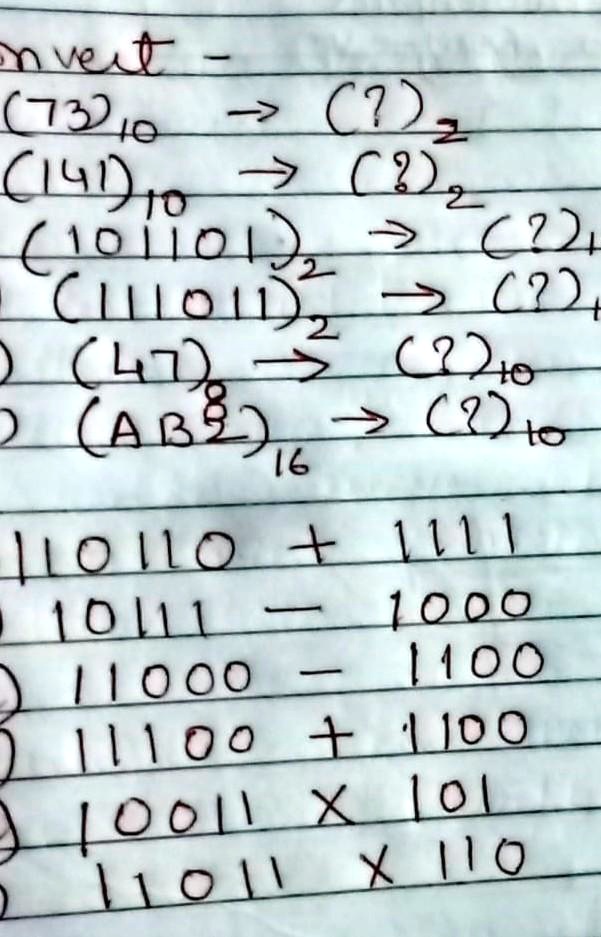 onvert -
(73)₁₀ → (?)₂
(141)₁₀ → (?)₂
(101101)₂ → (?)₁
(111011)₂ → (?)₁
) (47)₈ → (?)₁₀
) (AB2)₁₆ → (?)₁₀
110110 + 1111
10111 - 1000
) 11000 - 1100
) 11100 + 1100
) 10011 × 101
) 11011 × 110